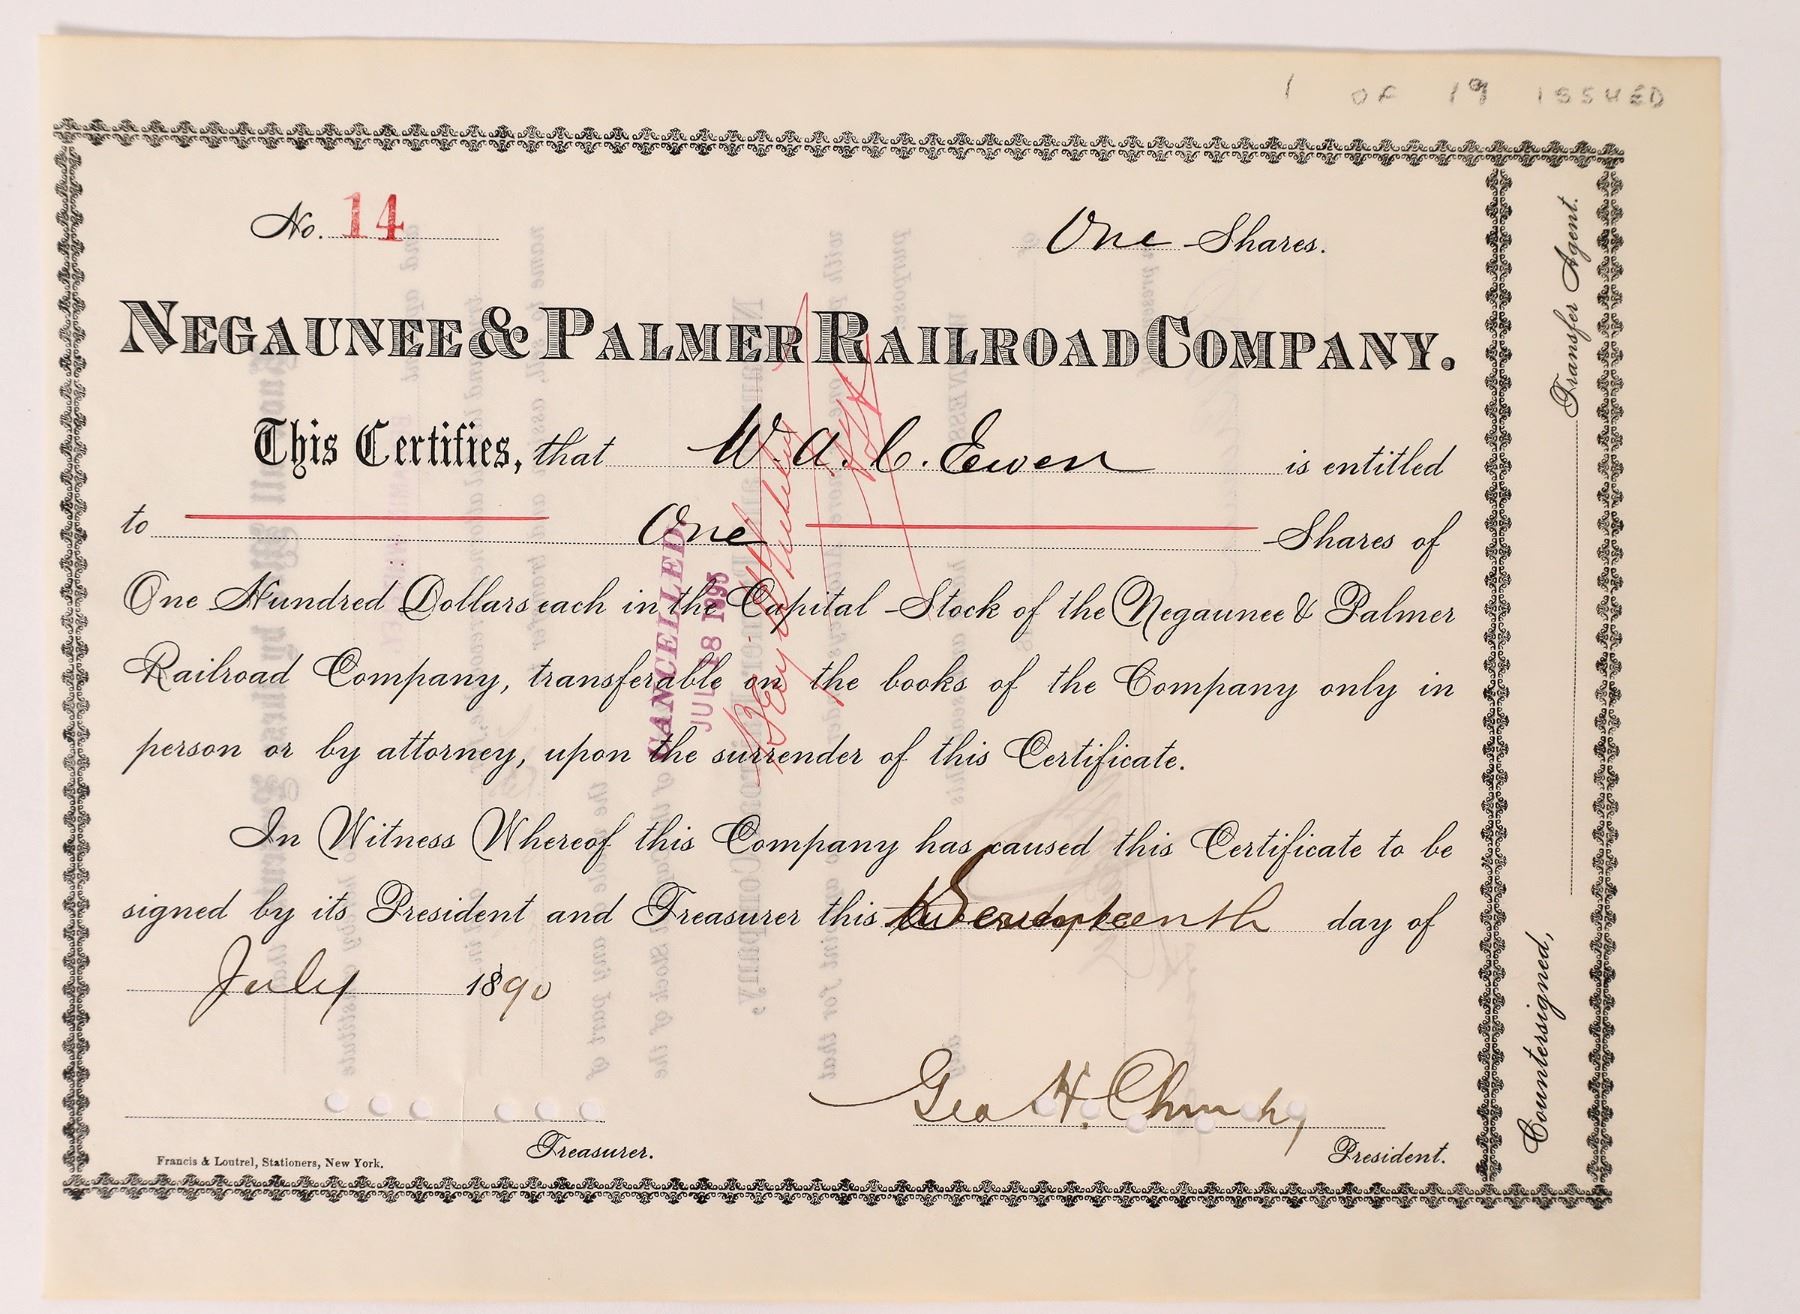 1 OF 19 ISSUED
No. 14
One Shares.
NEGAUNEE & PALMER RAILROAD COMPANY.
This Certifies, that W. A. C. Ewen is entitled
to One Shares of
One Hundred Dollars each in the Capital Stock of the Negaunee & Palmer
Railroad Company, transferable on the books of the Company only in
person or by attorney, upon the surrender of this Certificate.
In Witness Whereof this Company has caused this Certificate to be
signed by its President and Treasurer this day of
July 1890
Geo H.
Treasurer.
President.
Francis & Loutrel, Stationers, New York.
CANCELLED
JUL 18 1895
Countersigned,
Transfer Agent.